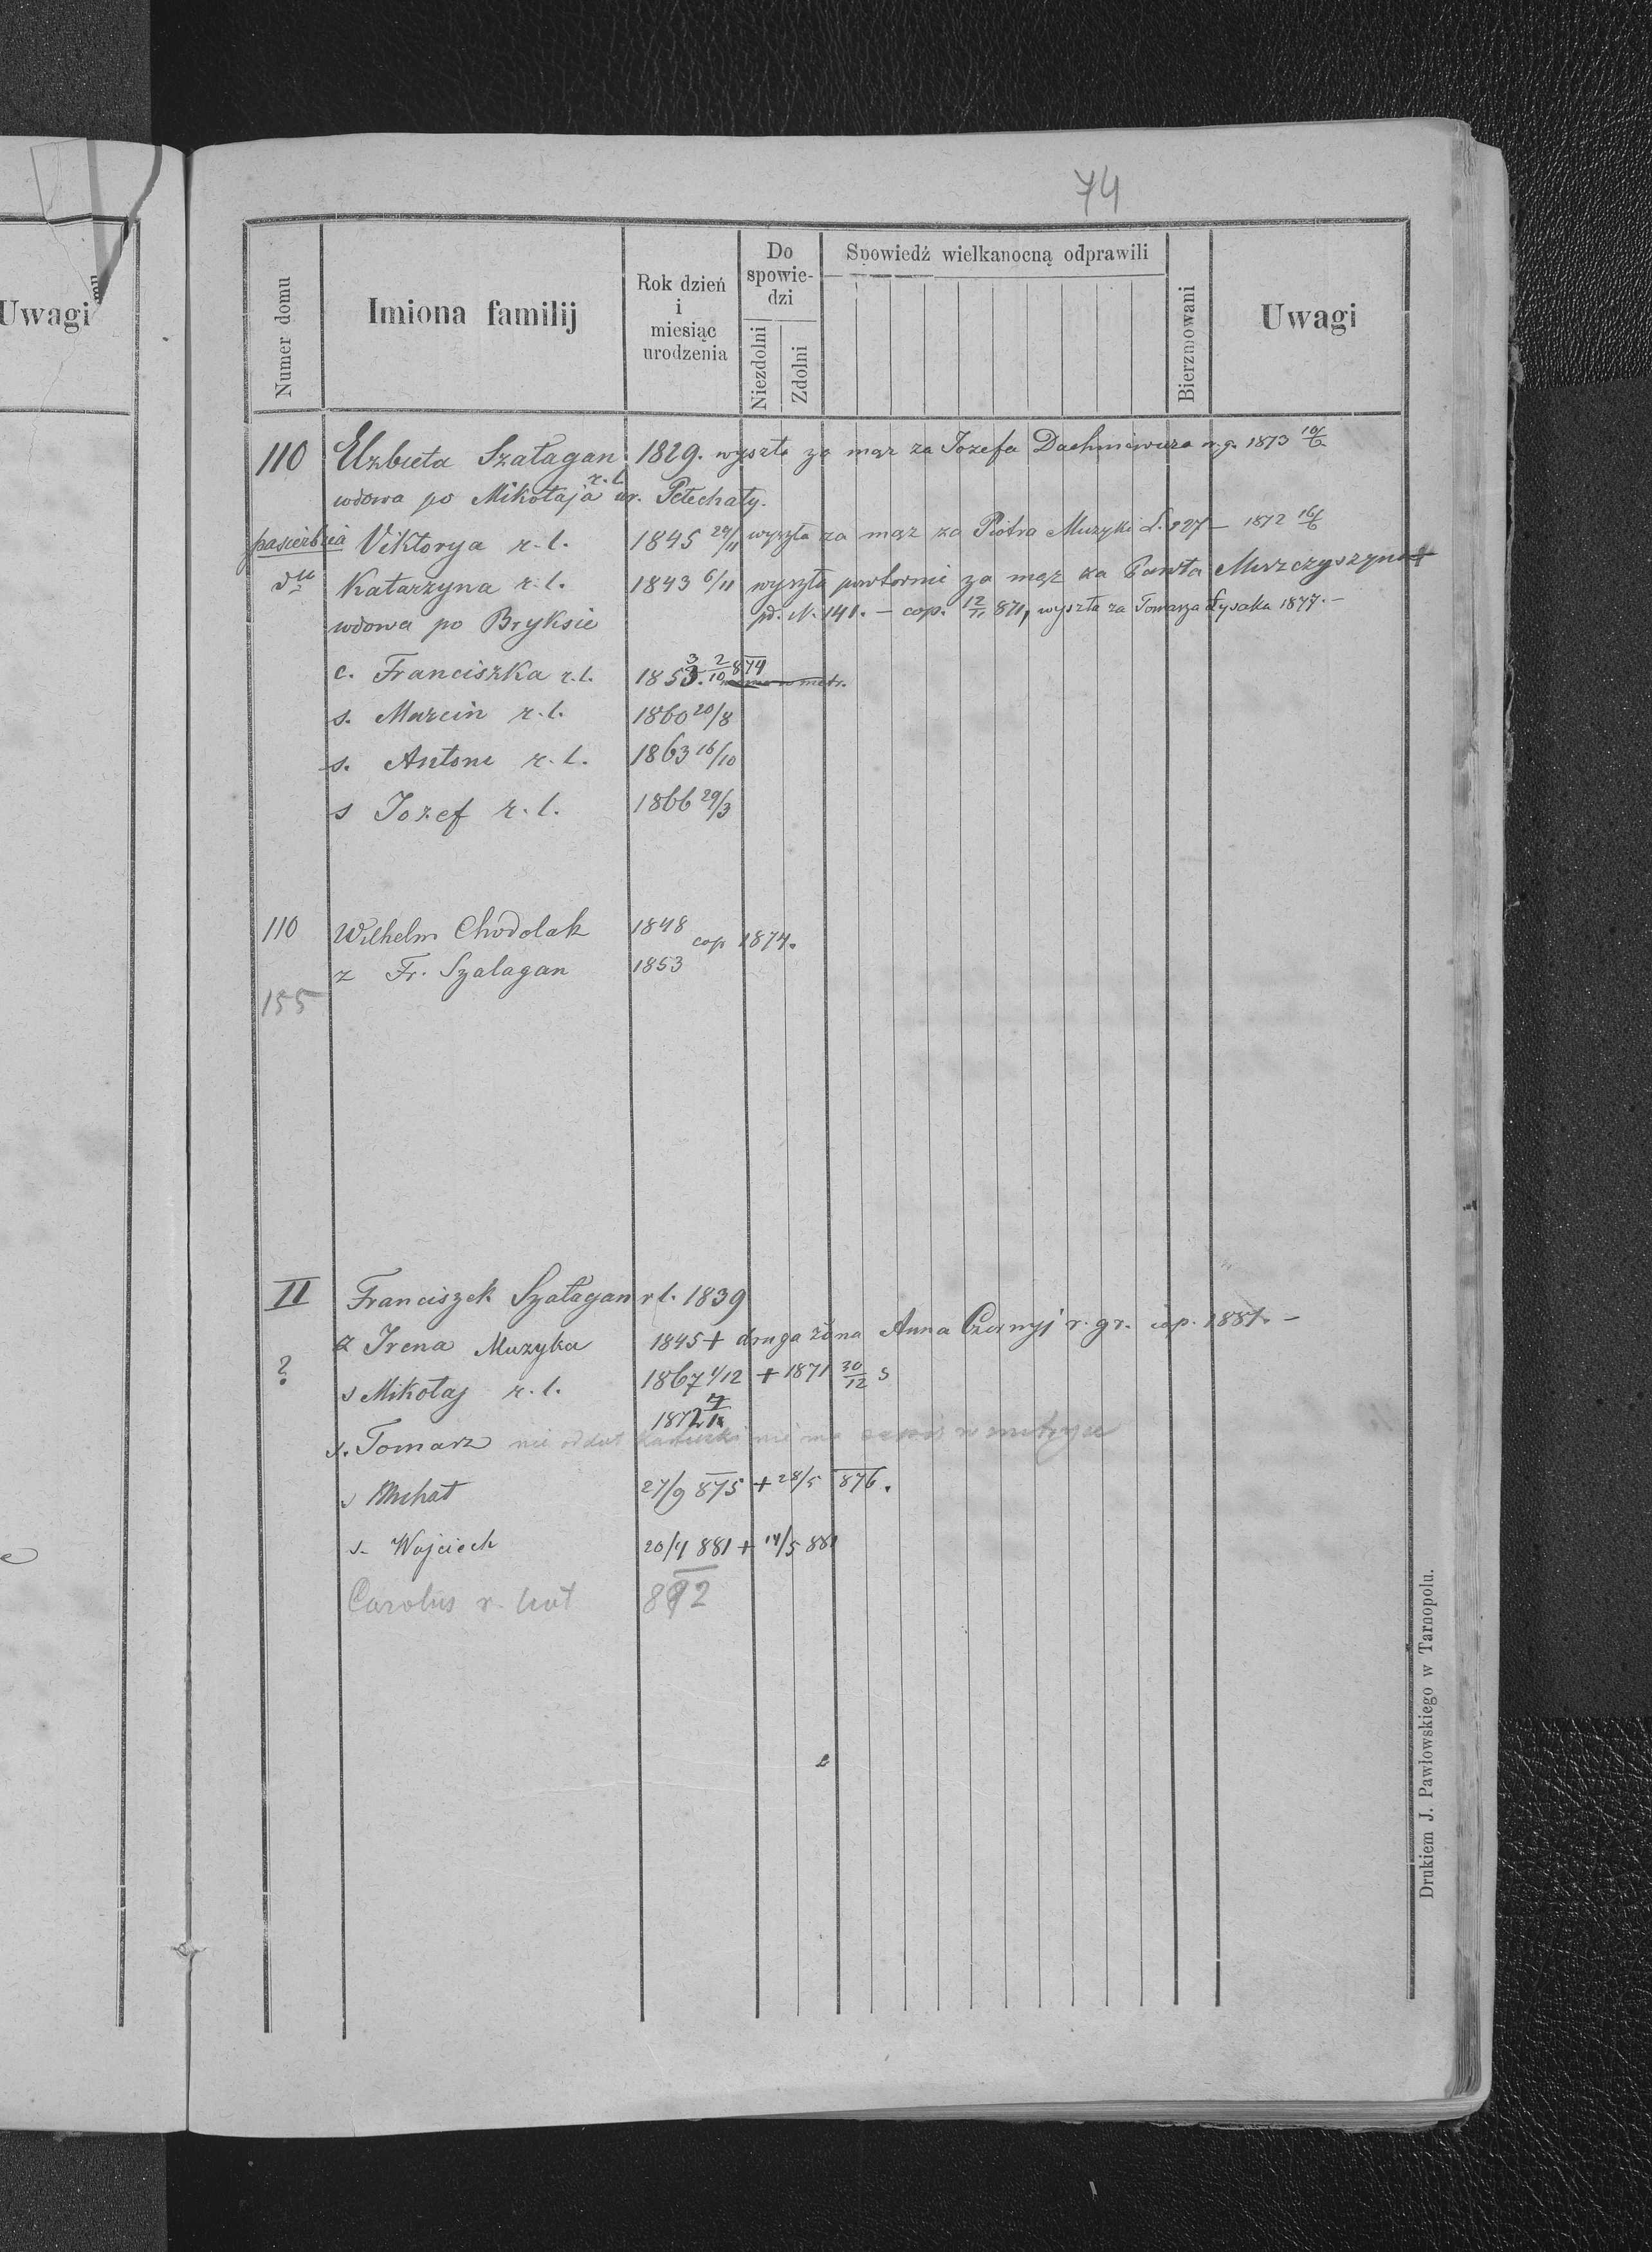 74
Uwagi
Numer domu
Imiona familij
Rok dzień i miesiąc urodzenia
Do spowiedzi
Niezdolni
Zdolni
Spowiedź wielkanocną odprawili
Bierzmowani
Uwagi
110 Elzbieta Szałagan 1829. wyszła za mąz za Jozefa r.g. 1873 10/6
wdowa po Mikołaja r.l. ur. Petechaty.
pasierbica Viktorya r.l. 1845 wyszła za mąz za Piotra Muzyki L. 227 – 1872 16/6
dtt Katarzyna r.l. 1843 6/11 wyszła powtornie za mąz za Pawła
wdowa po Bryksie pd. N. 141. – cop. 12/11 871, wyszła za Tomasza Łysaka 1877. –
c. Franciszka r.l. 1853. 3 2/10 874
s. Marcin r.l. 1860 20/8
s. Antoni r.l. 1863 16/10
s Jozef r.l. 1866 29/3
110 Wilhelm Chodolak 1848 cop 1874.
z Fr. Szalagan 1853
155
II Franciszek Szałagan r l. 1839
z Irena Muzyka 1845 + druga żona Anna Czornyj r. gr. cop. 1881. –
? s Mikołaj r.l. 1867 1/12 + 1871 30/12 s
s. Tomasz 1872 nie oddał kartuszki nie ma w metryce
s Michał 27/9 875 + 28/5 876.
s. Wojciech 20/4 881 + 14/5 881
Carolus r. 892
Drukiem J. Pawłowskiego w Tarnopolu.